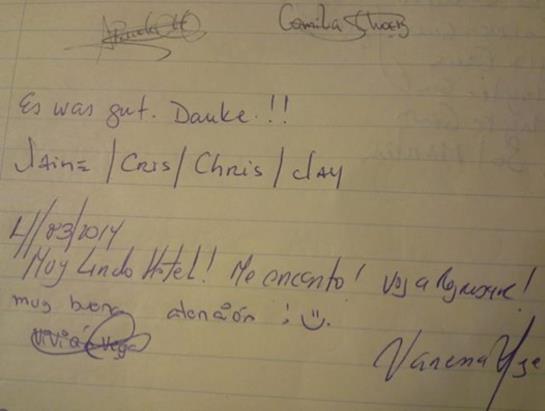 Camila
Es was gut. Danke.!!
JAine / Cris / Chris / clAy
4/03/2014
Muy Lindo Hotel! Me encanto! Voy a Regresar!
muy buena atención ; :)
Vivian Vega
Vanessa